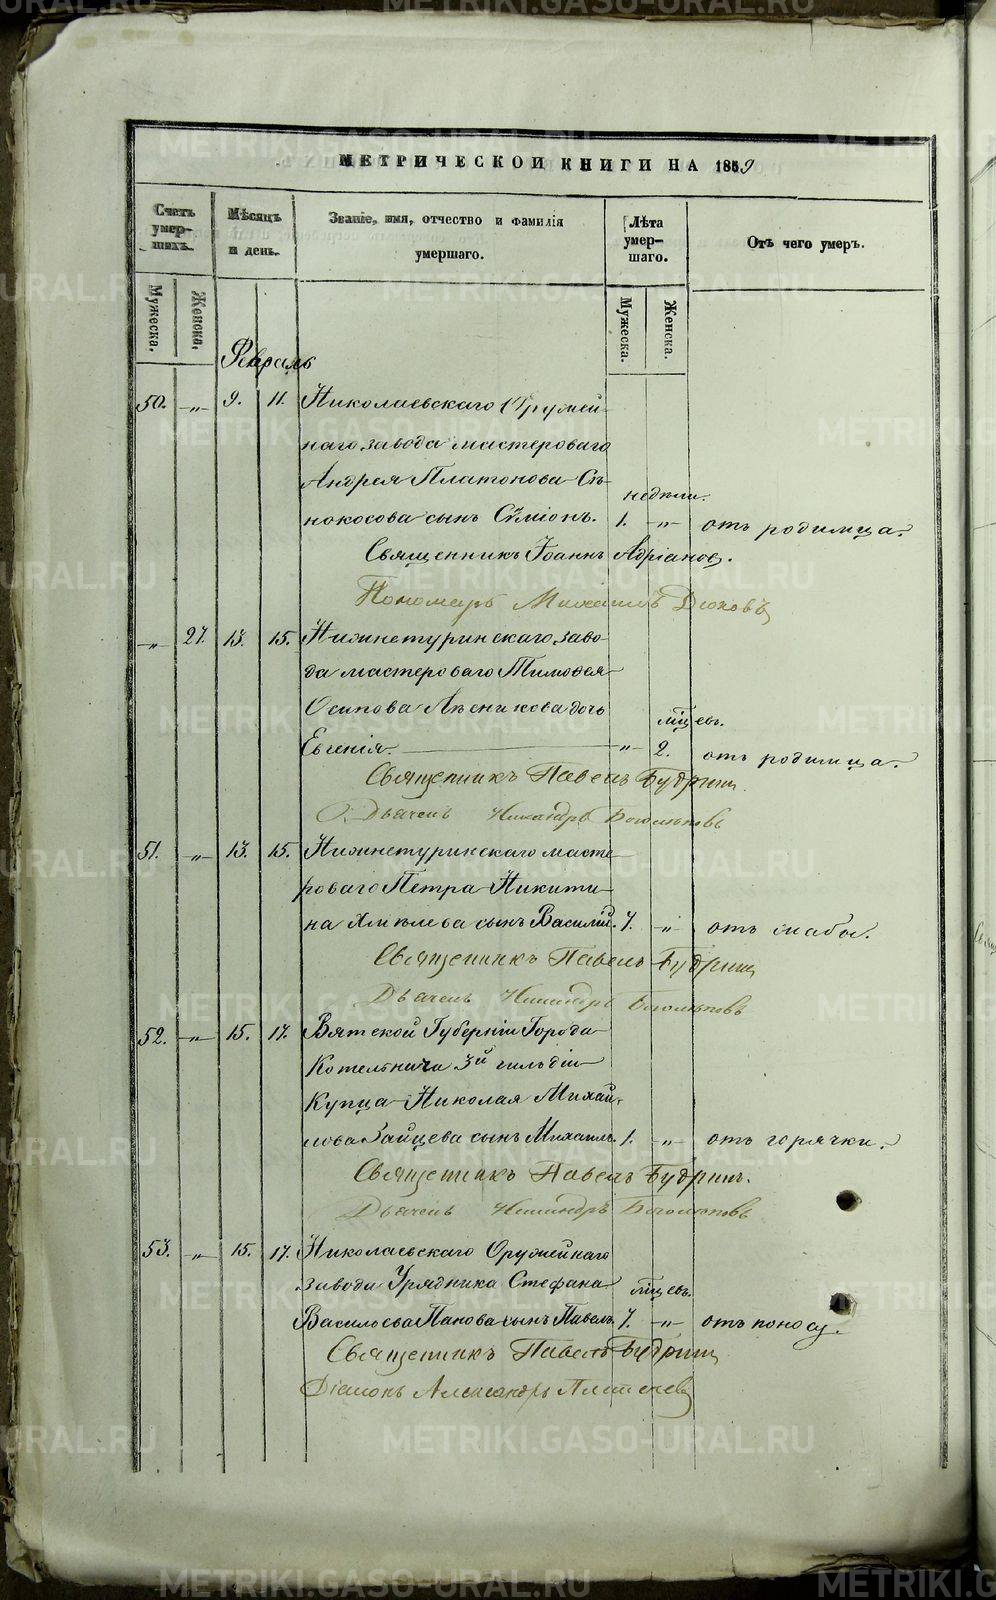 МЕТРИЧЕСКОЙ КНИГИ НА 1859
Счетъ умершихъ.
Мужеска.
Женска.
Мѣсяцъ и день.
Званіе, имя, отчество и фамилія умершаго.
Лѣта умершаго.
Мужеска.
Женска.
Отъ чего умеръ.
Февраль
50. „ 9. 11. Николаевскаго Оружей-
наго завода мастероваго
Андрея Платонова Сѣ-
недѣли.
нокосова сынъ Сѵмеонъ. 1. „ отъ родимца.
Священникъ Іоаннъ Адріановъ.
Пономарь Михаилъ Дюковъ
„ 27. 13. 15. Нижнетуринскаго заво-
да мастероваго Тимоѳея
Осипова Лѣсникова дочь
мѣсцевъ.
Евгенія. „ 2. отъ родимца.
Священникъ Павелъ Будринъ
Дьячекъ Никандръ Боголѣповъ
51. „ 13. 15. Нижнетуринскаго масте-
роваго Петра Никити-
на Хмѣлева сынъ Василій. 7. „ отъ слабы.
Священникъ Павелъ Будринъ
Дьячекъ Никандръ Боголѣповъ
52. „ 15. 17. Вятской Губерніи Города
Котельнича 3й гильдіи
Купца Николая Михай-
лова Зайцева сынъ Михаилъ. 1. „ отъ горячки.
Священникъ Павелъ Будринъ.
Дьячекъ Никандръ Боголѣповъ
53. „ 15. 17. Николаевскаго Оружейнаго
завода Урядника Стефана
мѣсцевъ.
Васильева Панова сынъ Павелъ. 7. „ отъ поносу.
Священникъ Павелъ Будринъ
Діаконъ Александръ
METRIKI.GASO-URAL.RU